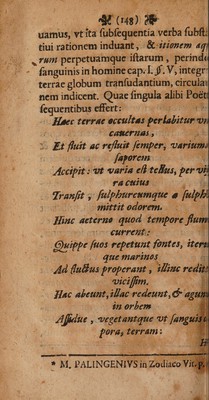 (148)
uamus, vt ita subsequentia verba subst
tiui rationem induant, & itionem aq
rum perpetuamque istarum, perinde
sanguinis in homine cap. I. §. V, integr
terrae globum transudantium, circular
nem indicent. Quae singula alibi Poët
sequentibus effert:
Haec terrae occultas perlabitur vn
cauernas,
Et fluit ac refluit semper, varium
saporem
Accipit: vt varia est tellus, per vi
ra cuius
Transit, sulphureumque a sulph
mittit odorem.
Hinc aeterno quod tempore flum
current:
Quippe suos repetunt fontes, iteru
que marinos
Ad fluctus properant, illinc redit
vicissim.
Hac abeunt, illac redeunt, & agun
in orbem
Assidue, vegetantque vt sanguis c
pora, terram:
H
* M. PALINGENIVS in Zodiaco Vit. p.